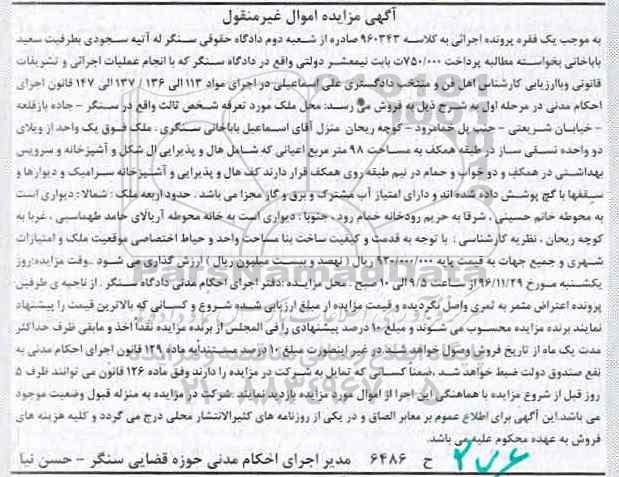 آگهی مزایده اموال غیرمنقول
به موجب یک فقره پرونده اجرائی به کلاسه ۹۶۰۳۴۳ صادره از شعبه دوم دادگاه حقوقی سنگر له آتیه سجودی بطرفیت سعید
باباخانی بخواسته مطالبه پرداخت ۷۵۰/۰۰۰ت بابت نیمعشر دولتی واقع در دادگاه سنگر که با انجام عملیات اجرائی و تشریفات
قانونی وباارزیابی کارشناس اهل فن و منتخب دادگستری علی اسماعیلی در اجرای مواد ۱۱۳ الی ۱۳۶ / ۱۳۷ الی ۱۴۷ قانون اجرای
احکام مدنی در مرحله اول به شرح ذیل به فروش می رسد: محل ملک مورد تعرفه شخص ثالث واقع در سنگر - جاده بازقلعه
- خیابان شریعتی - جنب پل خمامرود - کوچه ریحان منزل آقای اسمعیل باباخانی سنگری . ملک فوق یک واحد از ویلای
دو واحده نسقی ساز در طبقه همکف به مساحت ۹۸ متر مربع اعیانی که شامل هال و پذیرایی ال شکل و آشپزخانه و سرویس
بهداشتی در همکف و دو خواب و حمام در نیم طبقه روی همکف قرار دارند کف هال و پذیرایی و آشپزخانه سرامیک و دیوارها و
سقفها با گچ پوشش داده شده اند و دارای امتیاز آب مشترک و برق و گاز مجزا می باشد . حدود اربعه ملک : شمالا : دیواری است
به محوطه خانم حسینی ، شرقا به حریم رودخانه خمام رود ، جنوبا : دیواری است به خانه محوطه آریالای حامد طهماسبی ، غربا به
کوچه ریحان ، نظریه کارشناسی : با توجه به قدمت و کیفیت ساخت بنا مساحت واحد و حیاط اختصاصی موقعیت ملک و امتیازات
شهری و جمیع جهات به قیمت پایه ۹۲۰/۰۰۰/۰۰۰ ریال ( نهصد و بیست میلیون ریال ) ارزش گذاری می شود . وقت مزایده:روز
یکشنبه مورخ ۹۶/۱۱/۲۹ از ساعت ۹/۵ الی ۱۰ صبح . محل مزایده :دفتر اجرای احکام مدنی دادگاه سنگر . از ناحیه ی طرفین
پرونده اعتراض مثمر به ثمری واصل نگردیده و قیمت مزایده از مبلغ ارزیابی شده شروع و کسانی که بالاترین قیمت را پیشنهاد
نمایند برنده مزایده محسوب می شوند و مبلغ ۱۰ درصد پیشنهادی را فی المجلس از برنده مزایده نقداً اخذ و مابقی ظرف حداکثر
مدت یک ماه از تاریخ فروش وصول خواهد شد در غیر اینصورت مبلغ ۱۰ درصد مستندابه ماده ۱۲۹ قانون اجرای احکام مدنی به
نفع صندوق دولت ضبط خواهد شد .ضمنا کسانی که تمایل به شرکت در مزایده را دارند وفق ماده ۱۲۶ قانون می توانند ظرف ۵
روز قبل از شروع مزایده با هماهنگی این اجرا از اموال مورد مزایده بازدید نمایند .شرکت در مزایده به منزله قبول وضعیت موجود
می باشد.این آگهی برای اطلاع عموم بر معابر الصاق و در یکی از روزنامه های کثیرالانتشار محلی درج می گردد و کلیه هزینه های
فروش به عهده محکوم علیه می باشد.
ح ۶۴۸۶ مدیر اجرای احکام مدنی حوزه قضایی سنگر - حسن نیا
ParsNamadData
۰۲۱-۸۸۳۴۹۶۷۰-۵